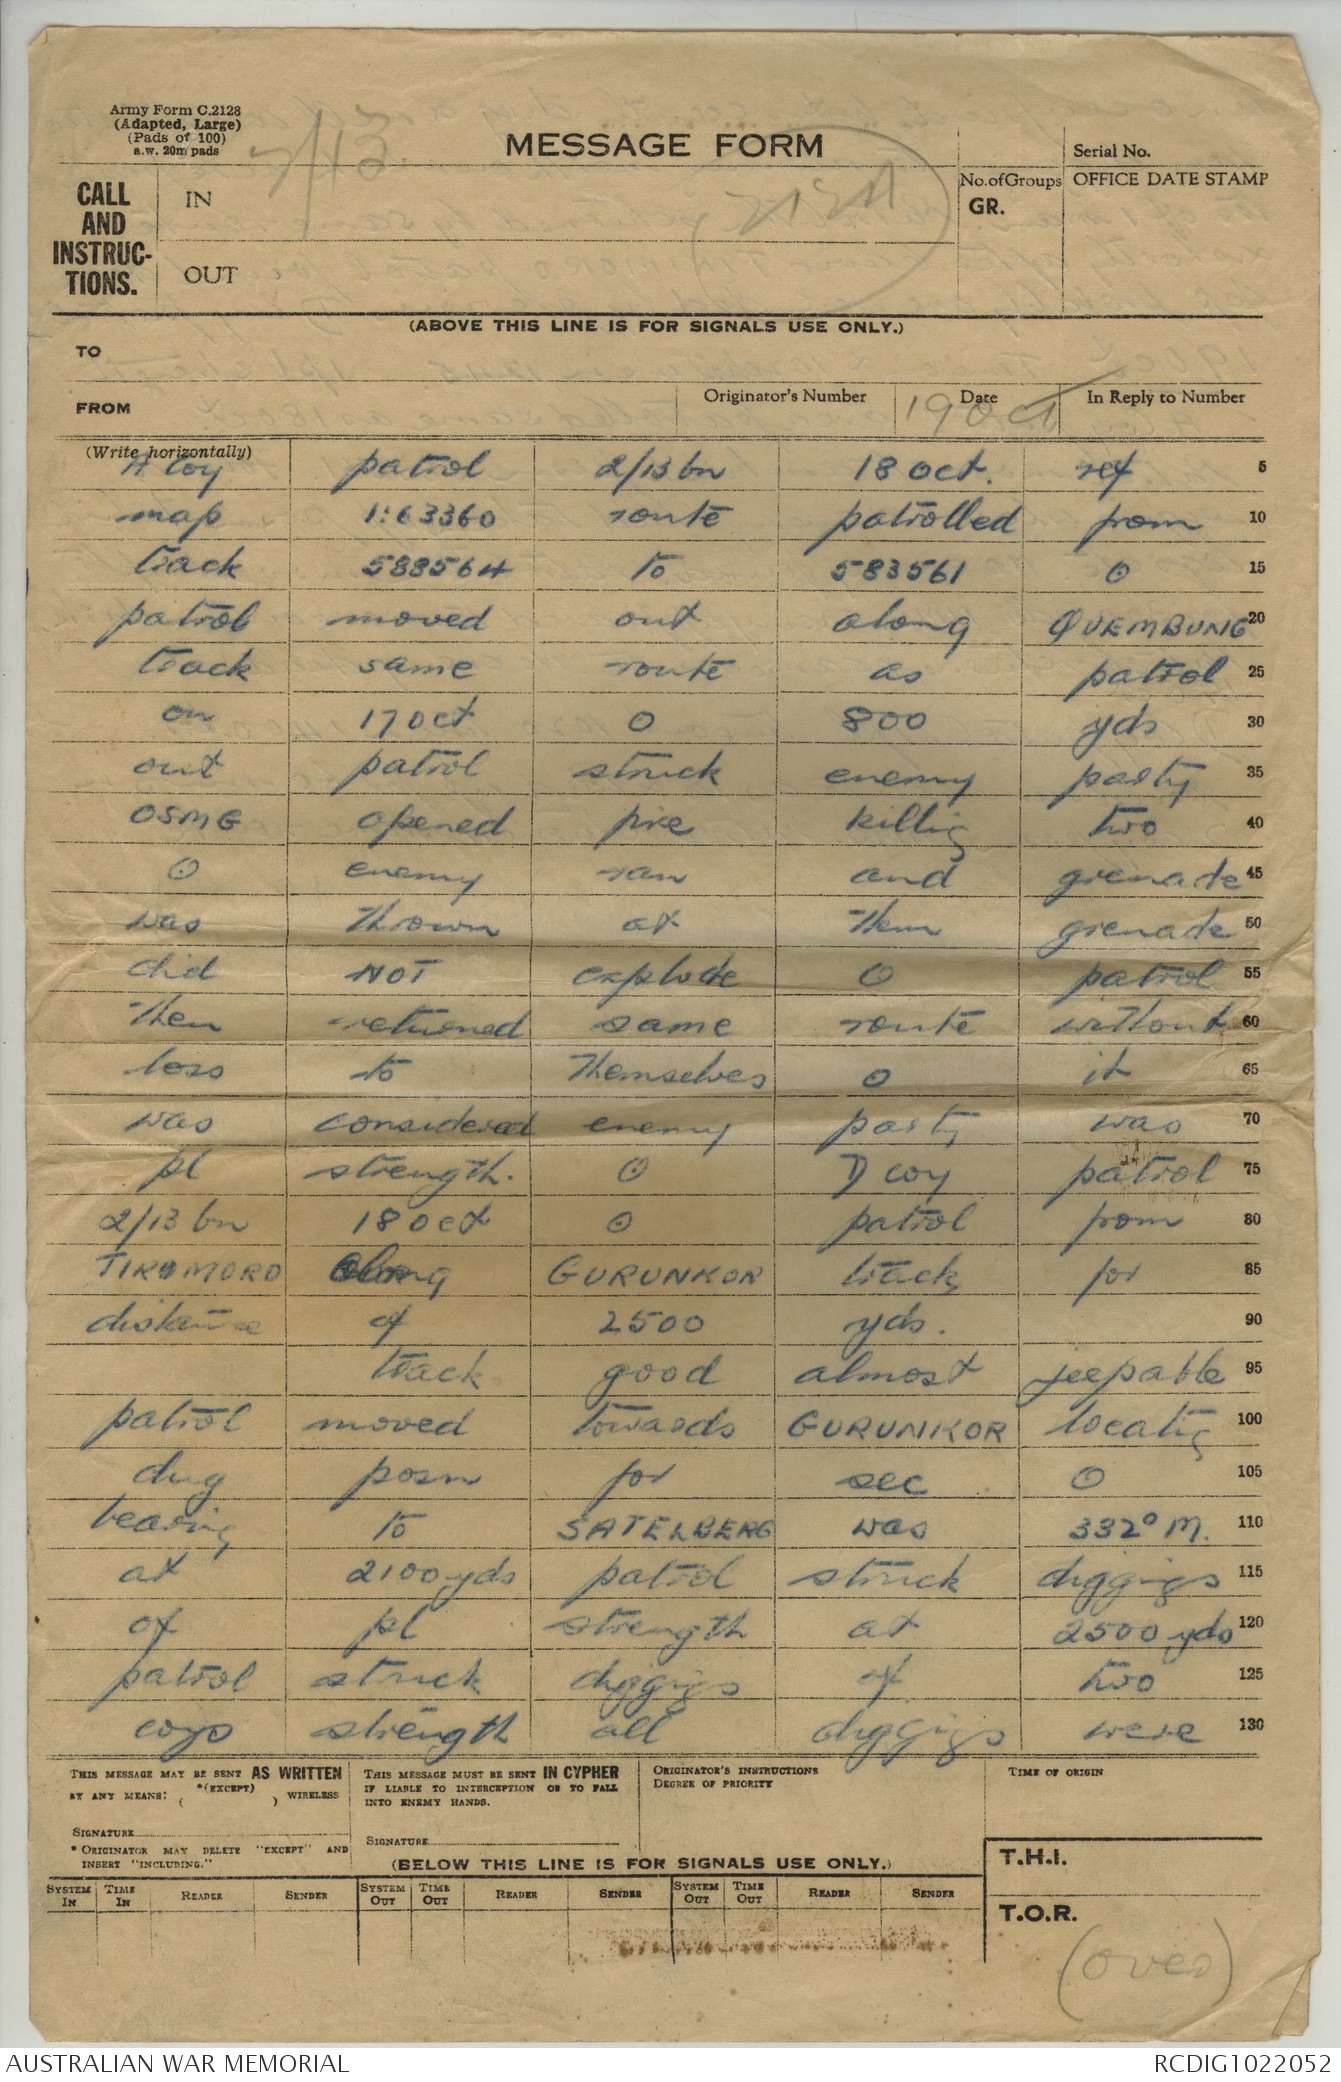 Army Form C.2128
(Adapted, Large)
(Pads of 100)
a.w. 20m pads
MESSAGE FORM
Serial No.
CALL
AND
INSTRUC-
TIONS.
IN
OUT
No. of Groups
GR.
OFFICE DATE STAMP
(ABOVE THIS LINE IS FOR SIGNALS USE ONLY.)
TO
FROM
Originator's Number
Date
19 Oct
In Reply to Number
(Write horizontally)
A coy patrol 2/13 bn 18 Oct. ref 5
map 1:63360 route patrolled from 10
track 588564 to 583561 ⊙ 15
patrol moved out along QUEMBUNG 20
track same route as patrol 25
on 17 Oct O 800 yds 30
out patrol struck enemy party 35
OSMG opened fire killig two 40
⊙ enemy ran and grenade 45
was thrown at them grenade 50
did NOT explode O patrol 55
then returned same route without 60
loss to themselves O it 65
was considered enemy party was 70
pl strength. ⊙ D coy patrol 75
2/13 bn 18 Oct ⊙ patrol from 80
TIROMORO along GURUNKOR track for 85
distance of 2500 yds. 90
track good almost jeepable 95
patrol moved towards GURUNKOR locatig 100
dug posn for sec O 105
bearing to SATELBERG was 332° M. 110
at 2100 yds patrol struck diggigs 115
of pl strength at 2500 yds 120
patrol struck diggigs of two 125
coys strength all diggigs were 130
THIS MESSAGE MAY BE SENT AS WRITTEN
BY ANY MEANS: *(EXCEPT) ( ) WIRELESS
SIGNATURE
* ORIGINATOR MAY DELETE "EXCEPT" AND
INSERT "INCLUDING."
THIS MESSAGE MUST BE SENT IN CYPHER
IF LIABLE TO INTERCEPTION OR TO FALL
INTO ENEMY HANDS.
SIGNATURE
ORIGINATOR'S INSTRUCTIONS
DEGREE OF PRIORITY
TIME OF ORIGIN
(BELOW THIS LINE IS FOR SIGNALS USE ONLY.)
T.H.I.
SYSTEM IN TIME IN READER SENDER SYSTEM OUT TIME OUT READER SENDER SYSTEM OUT TIME OUT READER SENDER
T.O.R.
(over)
AUSTRALIAN WAR MEMORIAL
RCDIG1022052